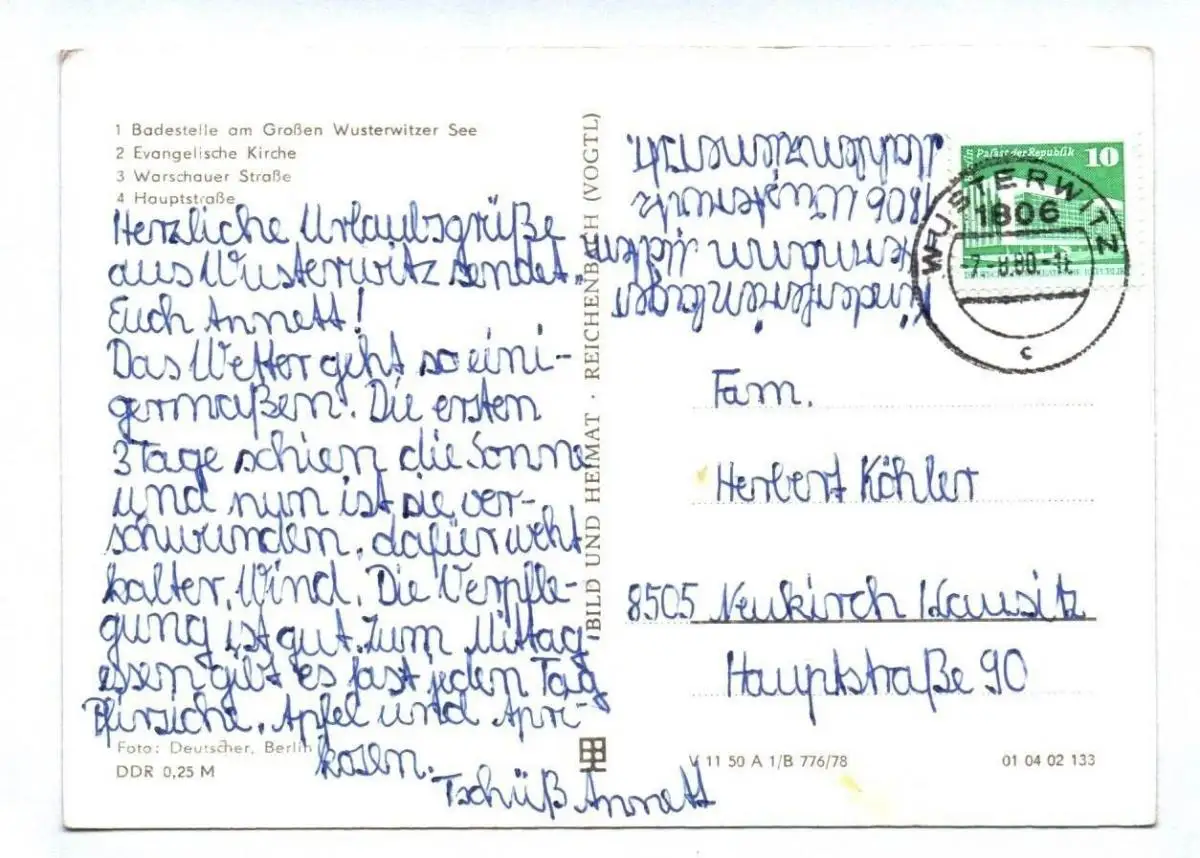 1 Badestelle am Großen Wusterwitzer See
2 Evangelische Kirche
3 Warschauer Straße
4 Hauptstraße
Herzliche Urlaubsgrüße
aus Wusterwitz sendet
Euch Annett!
Das Wetter geht so eini-
germaßen. Die ersten
3 Tage schien die Sonne
und nun ist sie ver-
schwunden, dafür weht
kalter Wind. Die Verpfle-
gung ist gut. Zum Mittag
essen gibt es fast jeden Tag
Pfirsiche, Apfel und Apri-
kosen.
Tschüß Annett
Foto: Deutscher, Berlin
DDR 0,25 M
BILD UND HEIMAT · REICHENBACH (VOGTL)
Kinderferienlager
Hermann
1806 Wusterwitz
Berlin Palast der Republik 10
WUSTERWITZ
1806
-7.-8.80-11
c
Fam.
Herbert Köhler
8505 Neukirch Lausitz
Hauptstraße 90
V 11 50 A 1/B 776/78
01 04 02 133